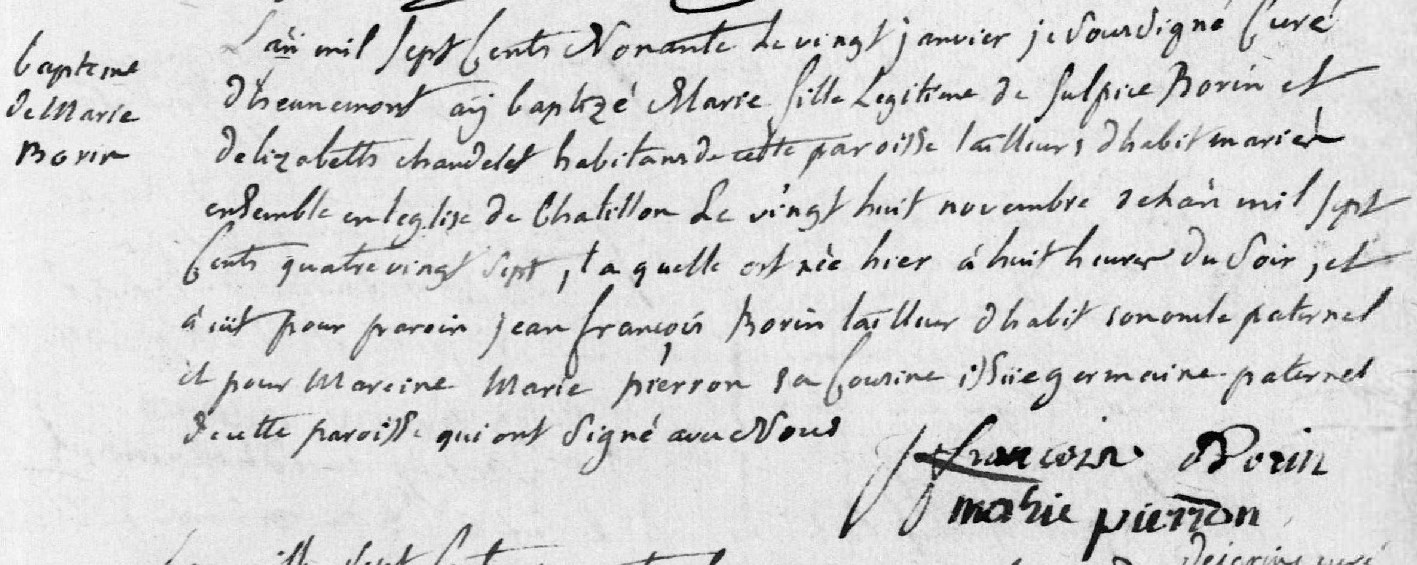 bapteme
de Marie
Borin
L'an mil sept cents Nonante Le vingt janvier je soussigné Curé
d'heunemont aÿ baptizé Marie fille Legitime de sulpice Borin et
delizabeth chandelet habitans de cette paroisse tailleurs dhabit mariés
ensemble en leglise de Chatillon Le vingt huit novembre de lan mil sept
cents quatre vingt sept, la quelle est née hier à huit heures du soir, et
à eüt pour paroin jean françois Borin tailleur dhabit son oncle paternel
et pour Mareine Marie pierron sa cousine issüe germaine paternel
de cette paroisse qui ont signé avec Nous
j françois Borin
marie pierron